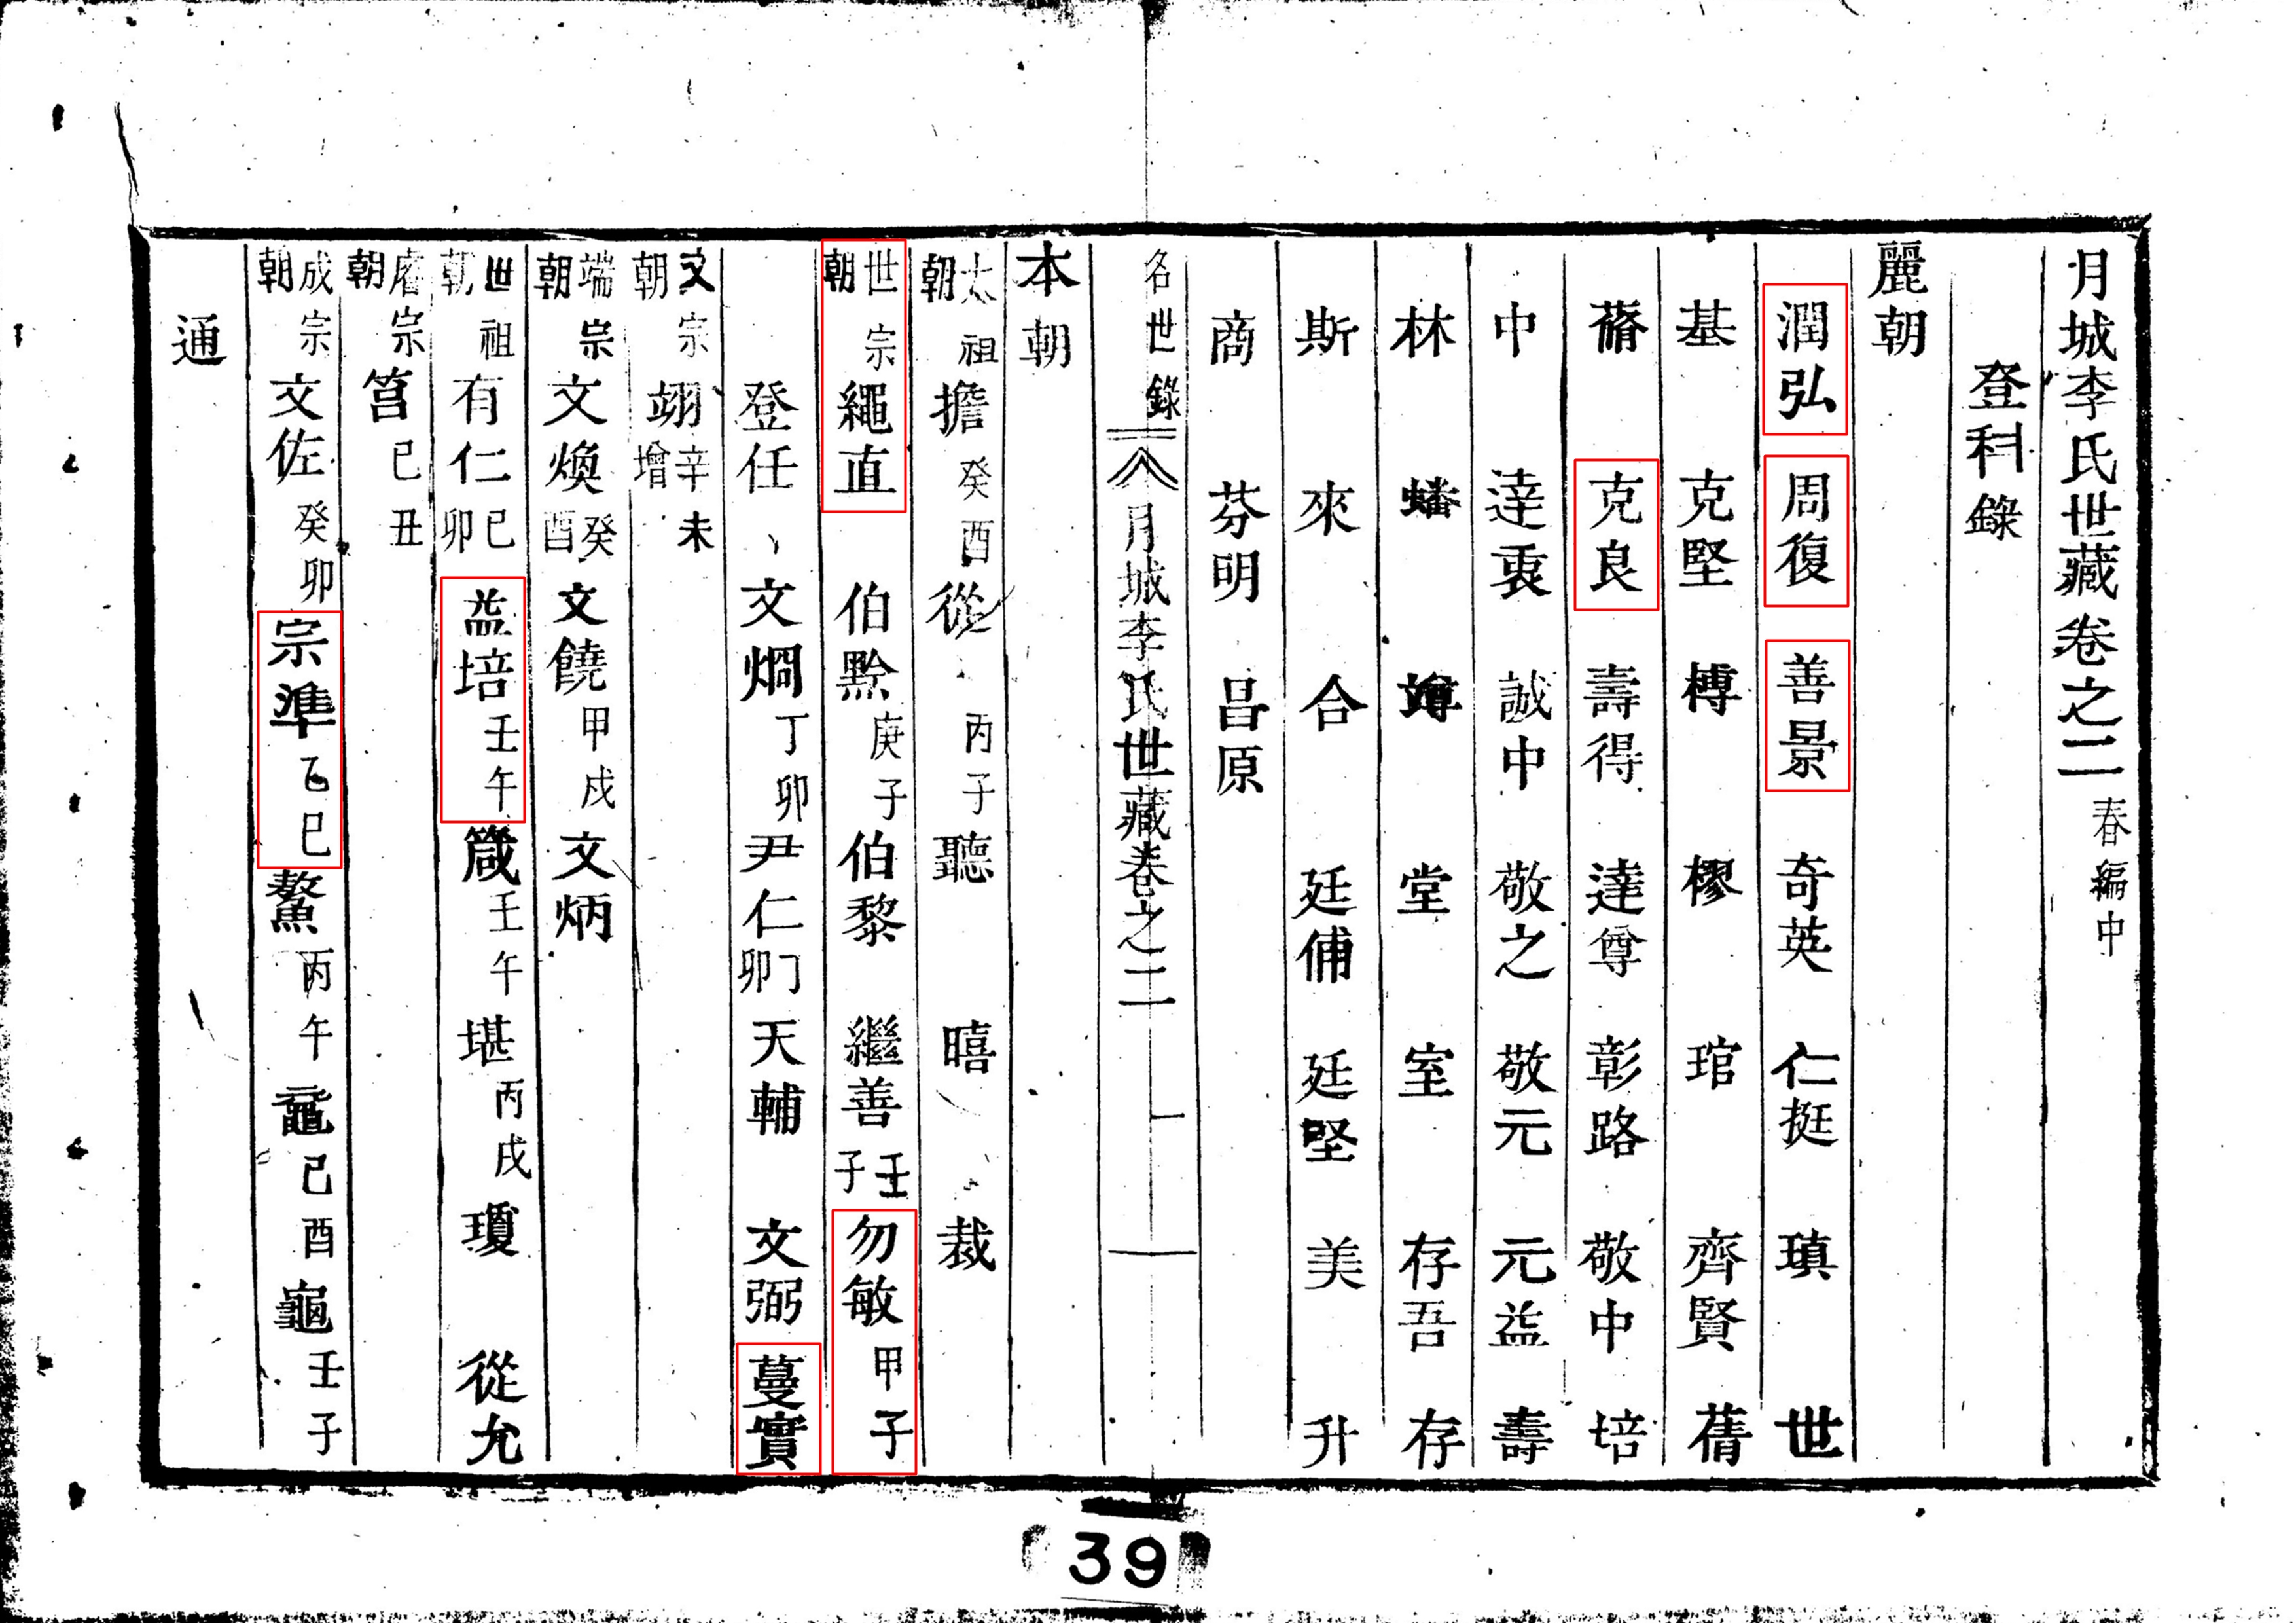 月城李氏世藏卷之二 春編中
登科錄
麗朝
潤弘 周復 善景 奇英 仁挺 瑱 世
基 克堅 榑 樛 琯 齊賢 蒨
蓨 克良 壽得 達尊 彰路 敬中 培
中 達衷 誠中 敬之 敬元 元益 壽
林 蟠 竴 堂 室 存吾 存
斯 來 合 廷俌 廷堅 美 升
商 芬明 昌原
名世錄 月城李氏世藏卷之二 一
本朝
太祖朝 擔 癸酉 從 丙子 聽 暿 裁
世宗朝 繩直 伯黔 庚子 伯黎 繼善 壬子 勿敏 甲子
登任 文烱 丁卯 尹仁 丁卯 天輔 文弼 蔓實
文宗朝 翊 辛未增
端宗朝 文煥 癸酉 文饒 甲戌 文炳
世祖朝 有仁 己卯 益培 壬午 箴 壬午 堪 丙戌 瓊 從允
睿宗朝 筥 己丑
成宗朝 文佐 癸卯 宗準 乙巳 鰲 丙午 黿 己酉 龜 壬子
通
39